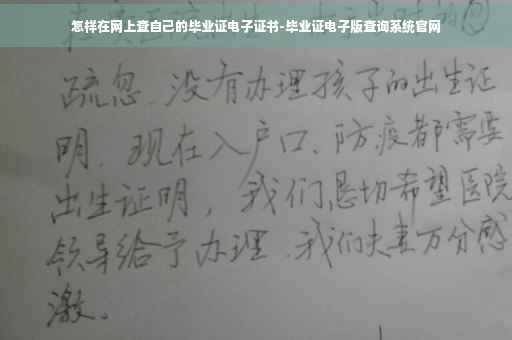 怎样在网上查自己的毕业证电子证书-毕业证电子版查询系统官网
疏忽、没有办理孩子的出生证
明、现在入户口、防疫都需要
出生证明，我们恳切希望医院
领导给予办理、我们夫妻万分感
激。